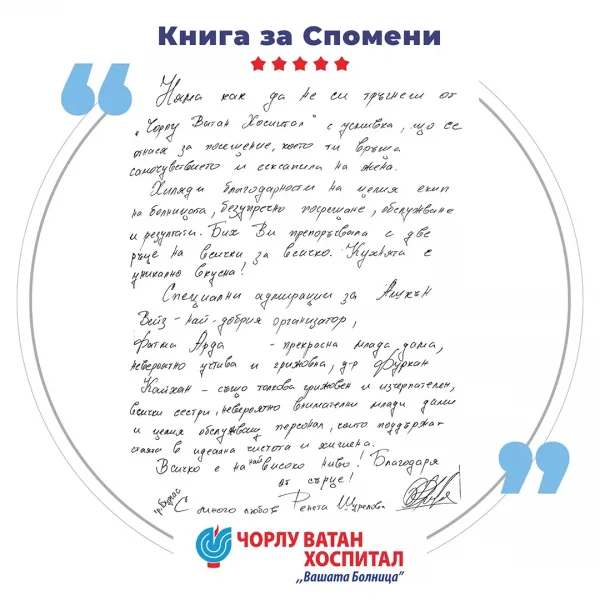 Книга за Спомени
Няма как да не си тръгнеш от
"Чорлу Ватан Хоспитал" с усмивка, що се
отнася за посещение, което ти връща
самочувствието и сексапила на жена.
Хиляди благодарности на целия екип
на болницата, безупречно посрещане, обслужване
и резултати. Бих Ви препоръчвала с две
ръце на всички за всичко. Кухнята е
уникално вкусна!
Специални адмирации за
Вейз - най-добрия организатор,
Фатма Арда - прекрасна млада дама,
невероятно учтива и грижовна, д-р Фуркан
Кайхан - също толкова грижовен и изчерпателен,
всички сестри, невероятно внимателни млади дами
и целия обслужващ персонал, които поддържат
стаята в идеална чистота и хигиена.
Всичко е на най високо ниво! Благодаря
от сърце!
гр. Бургас С много любов Ренета
ЧОРЛУ ВАТАН
ХОСПИТАЛ
,,Вашата Болница"